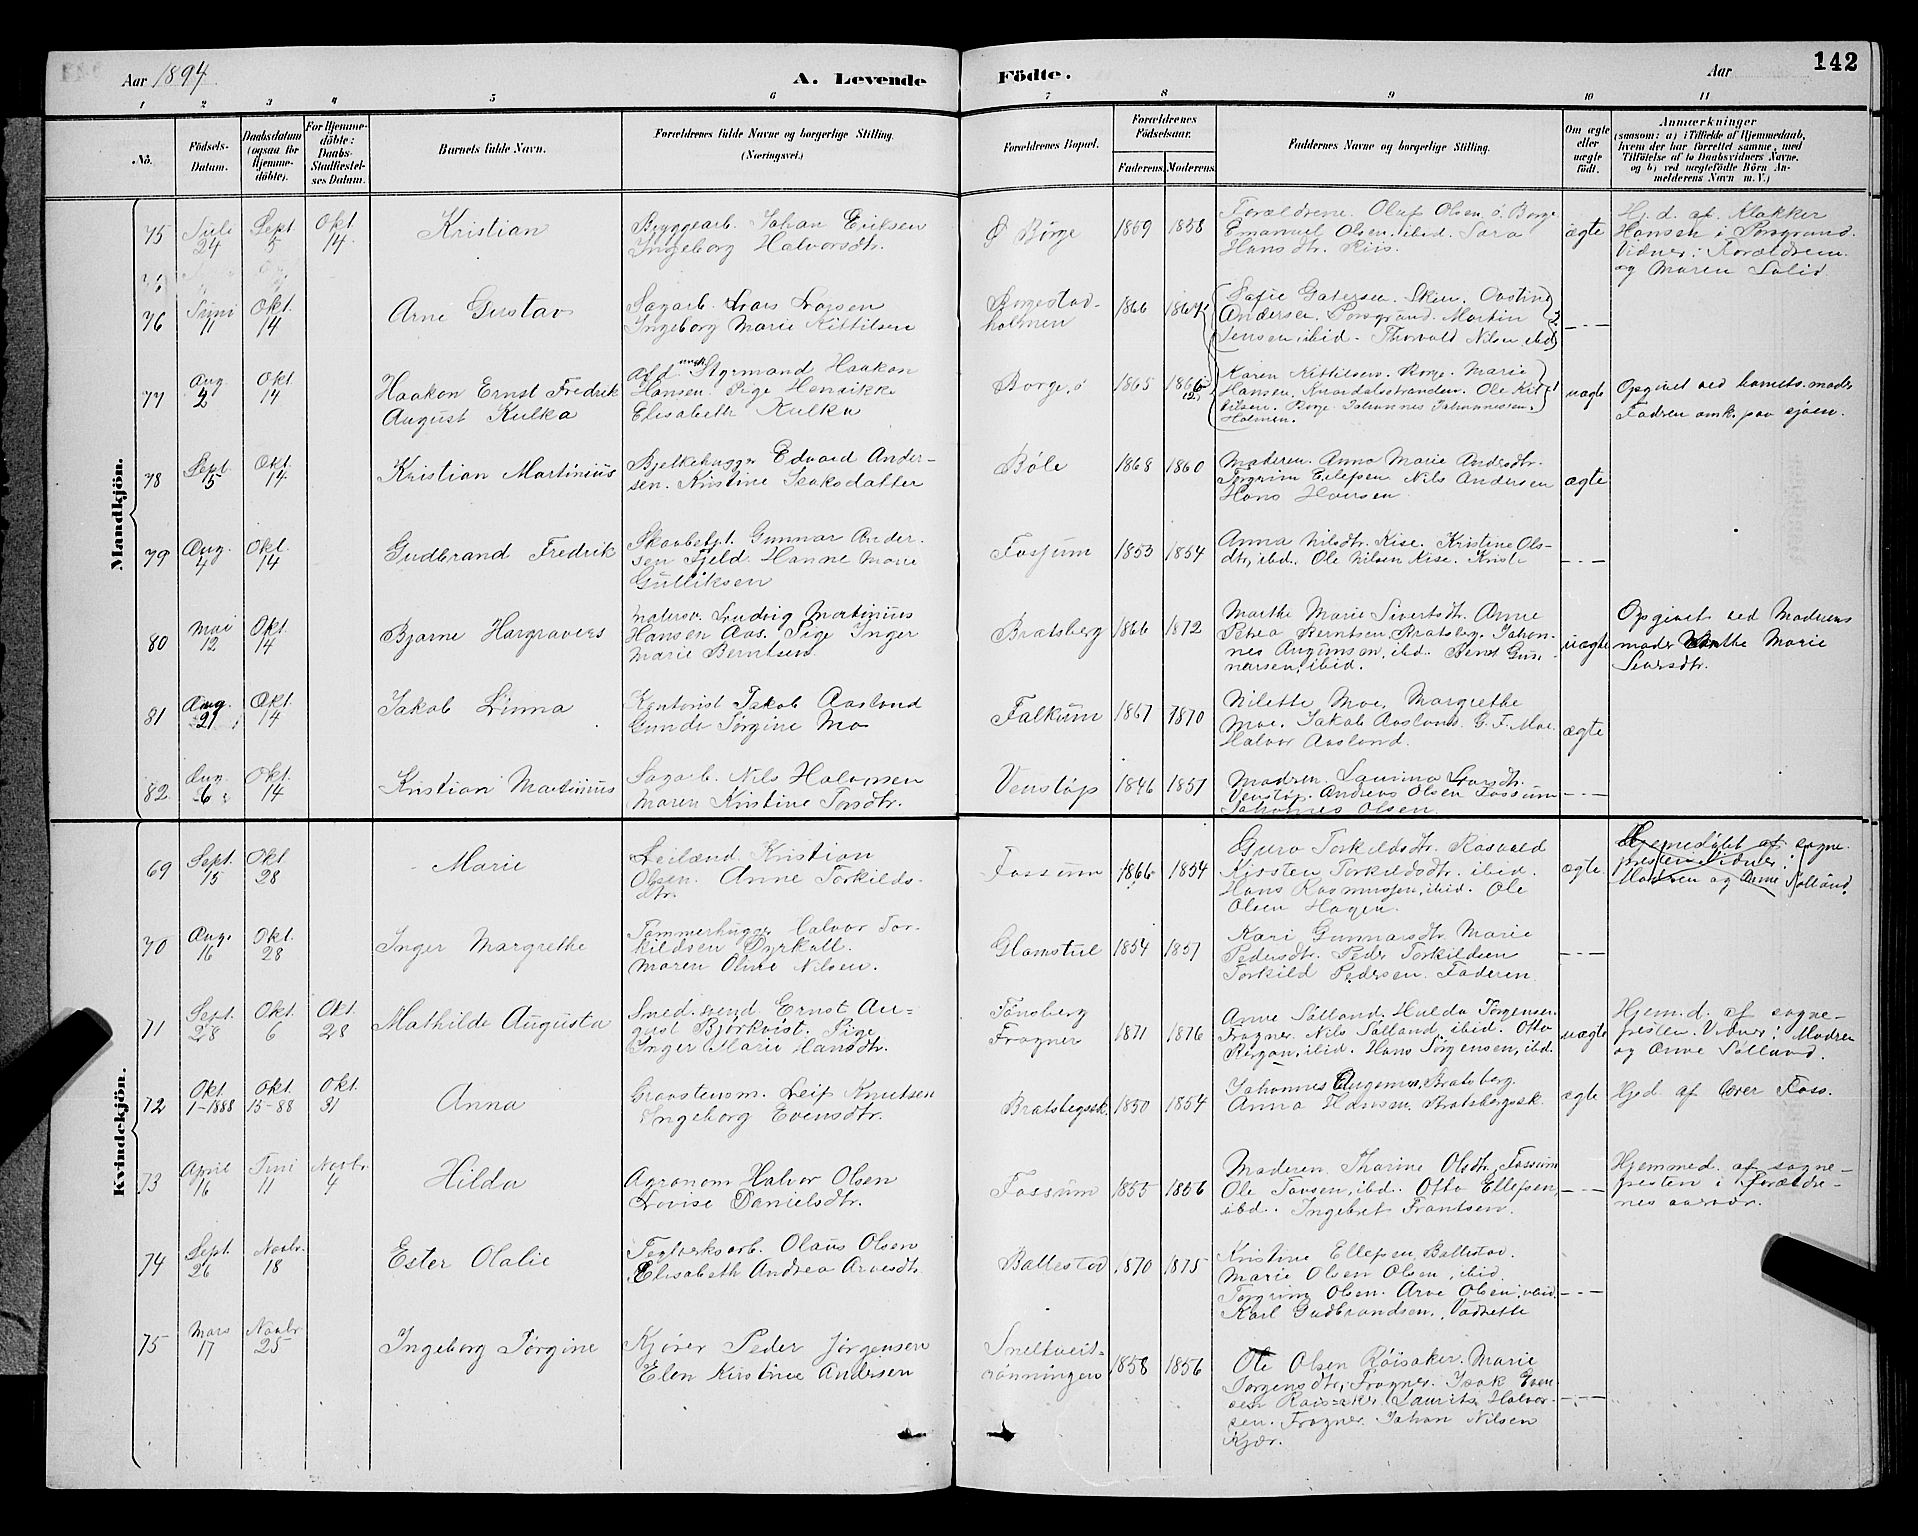 142
Aar 1894. A. Levende Födte. Aar
1 2 3 4 5 6 7 8 9 10 11
No.
Födsels-
Datum.
Daabsdatum
(ogsaa for
Hjemme-
döbte).
For Hjemme-
döbte:
Daabs-
Stadfæstel-
ses Datum.
Barnets fulde Navn.
Forældrenes fulde Navne og borgerlige Stilling.
(Næringsvei.)
Forældrenes Bopæl.
Forældrenes
Födselsaar.
Faderens. Moderens.
Faddernes Navne og borgerlige Stilling.
Om ægte
eller
uægte
født.
Anmærkninger
(saasom: a) i Tilfælde af Hjemmedaab,
hvem der har forrettet samme, med
Tilföielse af to Daabsvidners Navne,
og b) ved uægtefödte Börn An-
melderens Navn m. V.)
Mandkjön.
75 Juli 24 Sept 5 Okt 14. Kristian
Byggearb. Johan Eriksen
Ingeborg Halvorsdtr.
Ø Børge 1859 1858
Forældrene. Oluf Olsen, ø. Borge
Emanuel Olsen, ibid. Sara
Hansdtr. Riis.
ægte
Hj.d. af Klokker
Hansen i Porsgrund.
Vidner: Forældrene
og Maren Solid.
76 Juni 11 Okt. 14 Arne Gustav
Sagarb. Lars Larsen
Ingeborg Marie Kittilsen
Borgestad-
holmen 1866 1864
Andersen. Porsgrund. Martin
Jensen, ibid. Thorvald Nilsen, ibid
— - —
77 Aug. 2 Okt. 14 Haakon Ernst Fredrik
August Kulka
Styrmand Haakon
Hansen. Pige Henrikke
Elisabeth Kulka
Borge, ø 1865 1866
Karen Kittilsen. Borge. Marie
Hansen, Knardalsstranden. Ole Kit-
tilsen. Borge. Johannes Johannessen,
Holmen.
uægte
Opgivet ved barnets moder
Fadren omk. paa sjøen.
78 Sept. 5 Okt. 14 Kristian Martinius
Bjelkehugger Edvard Ander-
sen. Kristine Isaksdatter
Bøle 1868 1860
Moderen. Anna Marie Andrsdtr.
Torgrim Ellefsen Nils Andersen
Hans Hansen.
ægte
79 Aug. 4 Okt. 14 Gudbrand Fredrik
Skovbetjt. Gunnar Ander-
sen Fjeld. Hanne Marie
Gulliksen
Fossum 1853 1854
Anna Nilsdtr. Kise. Kristine Ols-
dtr, ibd. Ole Nilsen Kise.
— - —
80 Mai 12 Okt. 14 Bjarne Hargravers
Matros. Ludvig Martinius
Hansen Aas. Pige Inger
Marie Berntsen
Bratsberg 1866 1872
Marthe Marie Sivertsdtr. Anne
Petrea Berntsen, Bratsberg. Johan-
nes Augunsen, ibd. Bernt Gun-
narsen, ibid.
uægte
Opgivet ved Modrens
moder Marthe Marie
Siversdtr.
81 Aug. 21 Okt. 14 Jakob Linna
Kontorist Jakob Aasland
Gunda Jørgine Mo
Falkum 1867 1870
Nilette Moe, Margrethe
Moe, Jakob Aasland. G. F. Moe.
Halvor Aasland.
ægte
82 Aug. 6 Okt. 14 Kristian Martinius
Sagarb. Nils Halvorsen
Maren Kristine Torsdtr.
Venstøp 1846 1851
Modren. Laurina Larsdtr.
Venstøp. Andreas Olsen Fossum
Johannes Olsen.
— - —
Kvindekjön.
69 Sept. 15 Okt 28 Marie
Leilænd. Kristian
Olsen. Anne Torkilds-
dtr.
Fossum 1866 1854
Guro Torkildsdtr. Aasvald
Kirsten Torkildsdtr. ibid.
Hans Rasmussen, ibid. Ole
Olsen Hagen.
ægte
Hjemedøbt af sogne-
presten Vidner:
Modren og Anne Sølland.
70 Aug. 16 Okt. 28 Inger Margrethe
Tømmerhugger Halvor Tor-
kildsen Dyrkoll.
Maren Oline Nilsen.
Glamstul 1854 1851
Kari Gunnarsdtr. Marie
Pedersdtr. Peder Torkildsen
Torkild Pedersen. Faderen
— - —
71 Sept. 28 Okt. 6 Okt. 28 Mathilde Augusta
Sned. svend Ernst Au-
gust Bjørkvist. Pige
Inger Marie Hansdtr.
Tønsberg
Frogner 1871 1876
Anne Sølland. Hulda Jørgensen
Frogner. Nils Sølland, ibid. Otto
Bergan, ibid. Hans Jørgensen, ibd.
uægte
Hjem.d. af sogne-
presten. Vidner: Modren
og Anne Sølland.
72 Okt. 1-1888 Okt. 15-88 Okt 31 Anna
Graastensm. Leif Knutsen
Ingeborg Evensdtr.
Bratsbergsk. 1850 1854
Johannes Augensen, Bratsberg.
Anna Hansen. Bratsbergsk.
ægte
Hjd. af lærer Foss.
73 April 16 Juni 11 Novbr. 4 Hilda
Agronom Halvor Olsen
Lovise Danielsdtr.
Fossum 1855 1856
Moderen. Tharine Olsdtr, Fossum
Ole Tovsen, ibd. Otto Ellefsen,
ibd. Ingebret Frantsen.
— - —
Hjemmed. af sogne-
presten i forældre-
nes nærvær.
74 Sept. 26 Novbr. 18 Ester Olalie
Teglverksarb. Olaus Olsen
Elisabeth Andrea Arnesdtr.
Ballestad 1870 1875
Kristine Ellefsen, Ballestad.
Marie Olsen Olsen, ibid.
Torgrim Olsen. Arne Olsen, ibid.
Karl Gudbrandsen, Vadrette
— - —
75 Mars 17 Novbr. 25 Ingeborg Jørgine
Kjører Peder Jørgensen
Elen Kirstine Andersen
Sneltveit-
rønningen 1858 1856
Ole Olsen Røisaker. Marie
Jørgensdtr, Frogner. Isak Even-
sen Røisaker. Laurits Halvor-
sen. Frogner. Johan Nilsen
Kjær.
— - —